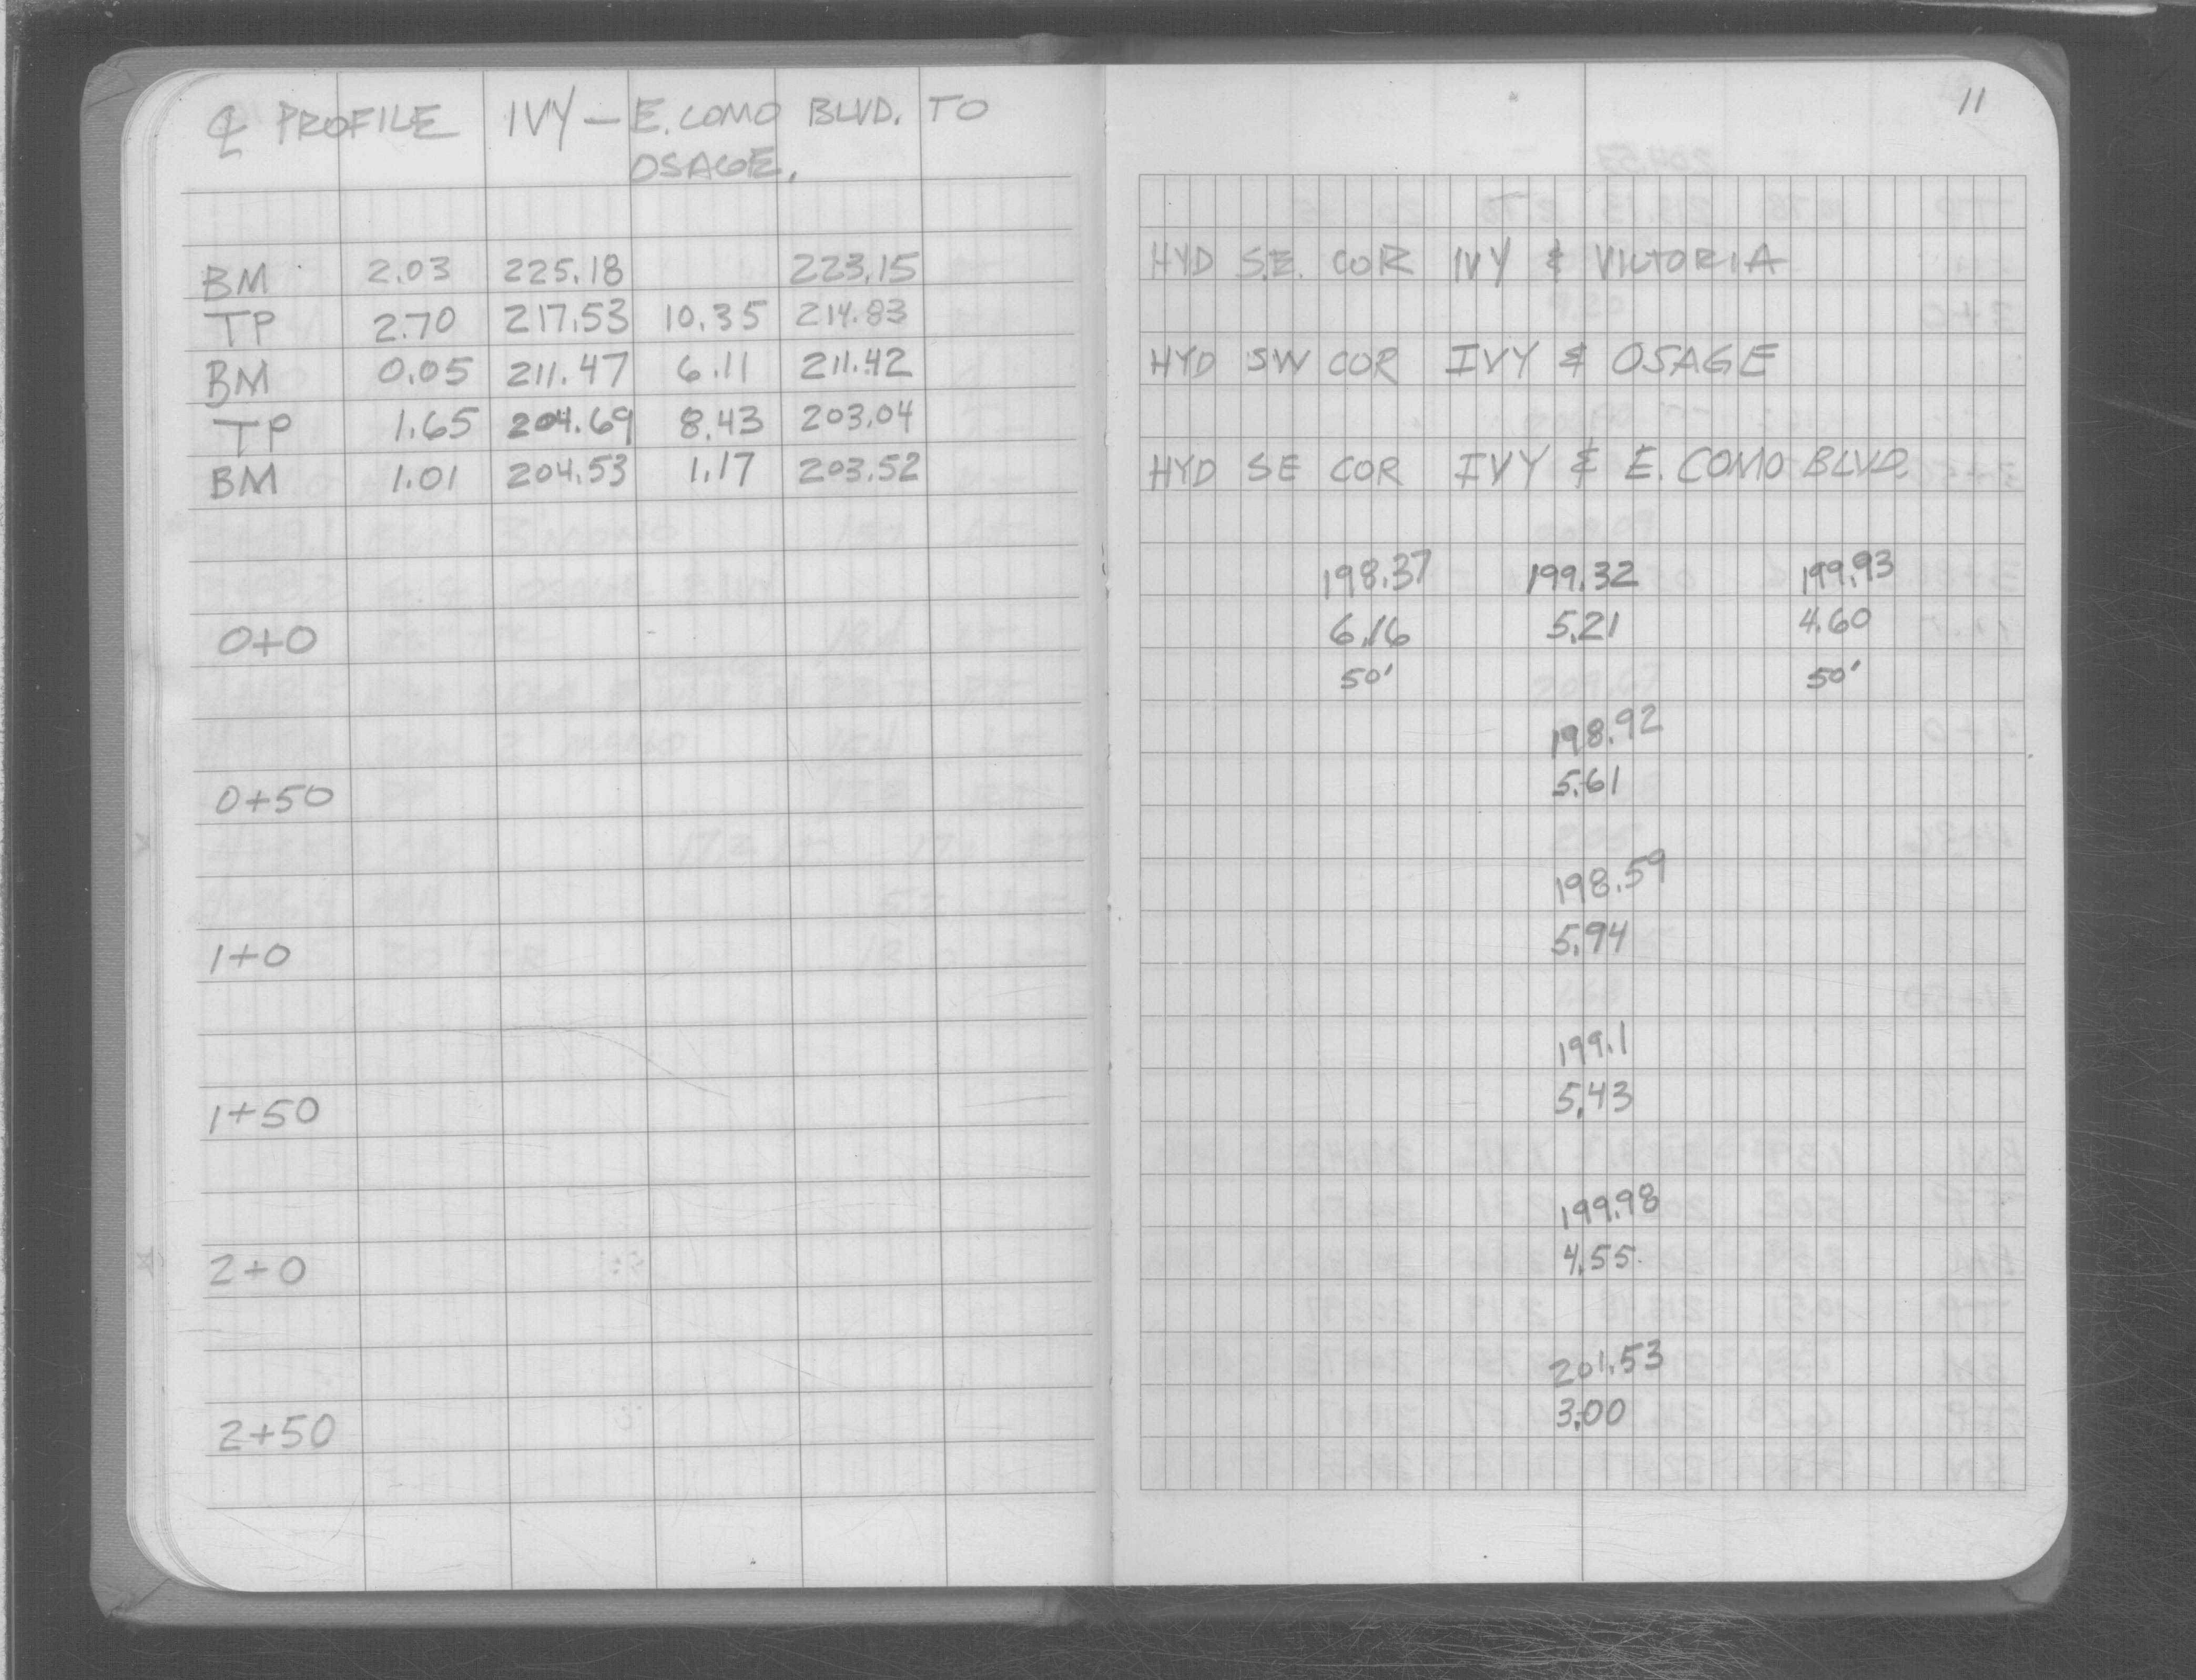 ℄ PROFILE IVY — E. COMO BLVD. TO
OSAGE.
11
BM 2.03 225.18 223.15 HYD S.E. COR IVY & VICTORIA
TP 2.70 217.53 10.35 214.83
BM 0.05 211.47 6.11 211.42 HYD SW COR IVY & OSAGE
TP 1.65 204.69 8.43 203.04
BM 1.01 204.53 1.17 203.52 HYD SE COR IVY & E. COMO BLVD.
198.37 199.32 199.93
0+0 6.16 5.21 4.60
50' 50'
198.92
0+50 5.61
198.59
1+0 5.94
199.1
1+50 5.43
199.98
2+0 4.55
201.53
2+50 3.00